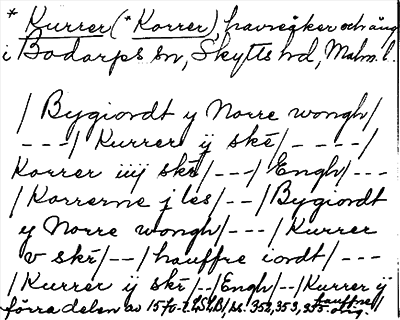 * Kurrer (*Korrer), havreåker och äng
i Bodarps sn, Skytts hd, Malm. l.
/ Bygiordt y Norre wongh/
---/ Kurrer ij skē/----/
Korrer iiij skē/---/Engh/---
/Korrerne j les/--/Bygiordt
y Norre wongh/---/Kurrer
v skē/--/hauffre iordt/---
/Kurrer ij skē/--/Engh/--/Kurrer ij
hauffre/
förra delen av 15 , ss. 352, 353, 355. orig.